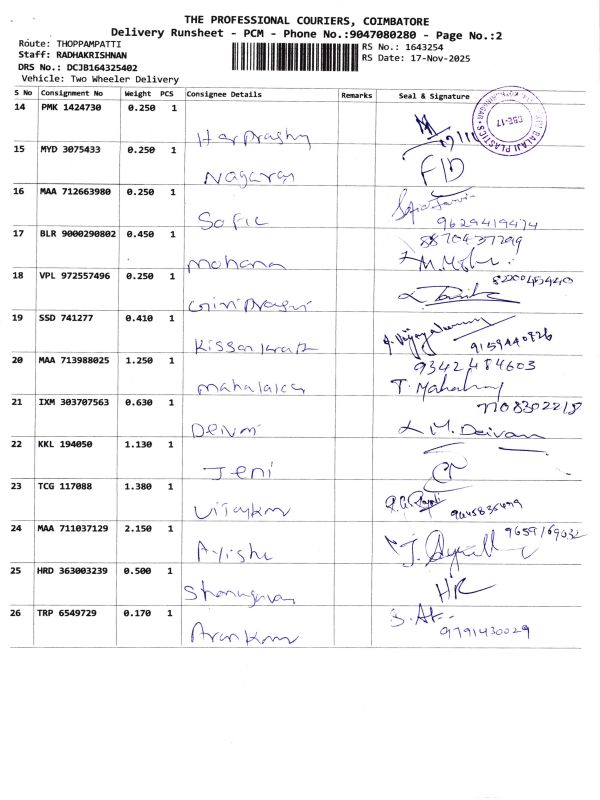 THE PROFESSIONAL COURIERS, COIMBATORE
Delivery Runsheet - PCM - Phone No.:9047080280 - Page No.:2
Route: THOPPAMPATTI
Staff: RADHAKRISHNAN
DRS No.: DCJB164325402
Vehicle: Two Wheeler Delivery
RS No.: 1643254
RS Date: 17-Nov-2025
S No Consignment No Weight PCS Consignee Details Remarks Seal & Signature
14 PMK 1424730 0.250 1
BALAJI PLASTICS
CBE-17
15 MYD 3075433 0.250 1
Nagaraj FID
16 MAA 712663980 0.250 1
Sofic 9629419474
17 BLR 9000290802 0.450 1 8870437299
mohana
18 VPL 972557496 0.250 1
19 SSD 741277 0.410 1
9159440826
20 MAA 713988025 1.250 1 9342484603
T. Mahalaxmi
21 IXM 303707563 0.630 1 7708302218
Deivani M. Deivani
22 KKL 194050 1.130 1
Jeni
23 TCG 117088 1.380 1
Vijaykm
24 MAA 711037129 2.150 1 9659169632
Ayisha
25 HRD 363003239 0.500 1
HR
26 TRP 6549729 0.170 1
Arunkm 9791430029